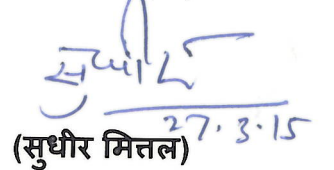 सुधीर
27.3.15
(सुधीर मित्तल)